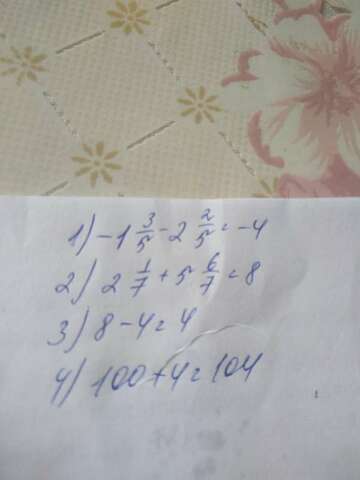 1) -1 3/5 - 2 2/5 = -4
2) 2 1/7 + 5 6/7 = 8
3) 8 - 4 = 4
4) 100 + 4 = 104